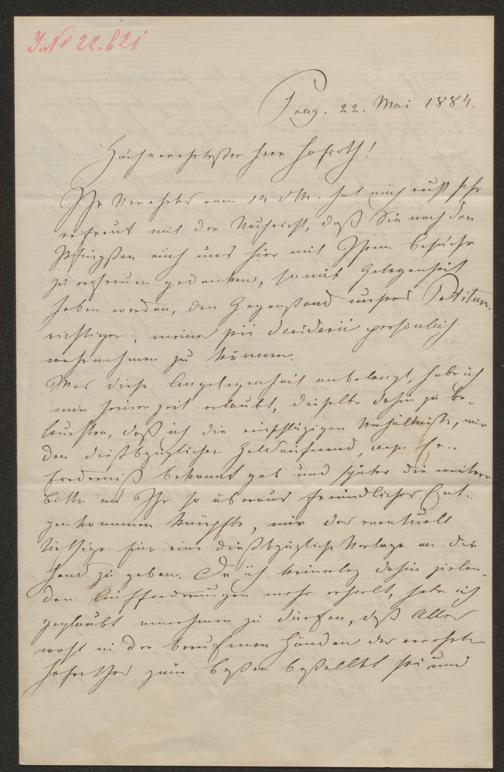 J. № 22.621
Prag. 22. Mai 1884.
Hochverehrtester Herr Hofrath!
Ihr Verehrtes vom 19. d M. hat mich recht sehr
erfreut mit der Nachricht, daß Sie nach den
Pfingsten auch uns hier mit Ihrem Besuche
zu erfreuen gedenken, somit Gelegenheit
haben werden, den Gegenstand unserer Petition,
richtiger, meiner pii desiderii persönlich
wahrnehmen zu können.
Was diese Angelegenheit anbelangt, habe ich
mir seiner Zeit erlaubt, dieselbe dahin zu be-
leuchten, daß ich die einschlägigen Verhältnisse, wie
den diesbezüglichen Geldaufwand, resp. Er-
forderniß bekannt gab und später die weitere
Bitte an Ihr so überaus freundliches Ent-
gegenkommen knüpfte, mir das eventuell
Nöthige für eine diesbezügliche Vorlage an die
Hand zu geben. Da ich keinerlei dahin zielen-
den Aufforderungen mehr erhielt, habe ich
geglaubt annehmen zu dürfen, daß Alles
wohl in den berufenen Händen des verehrten
Hofrathes zum besten bestellt sei und